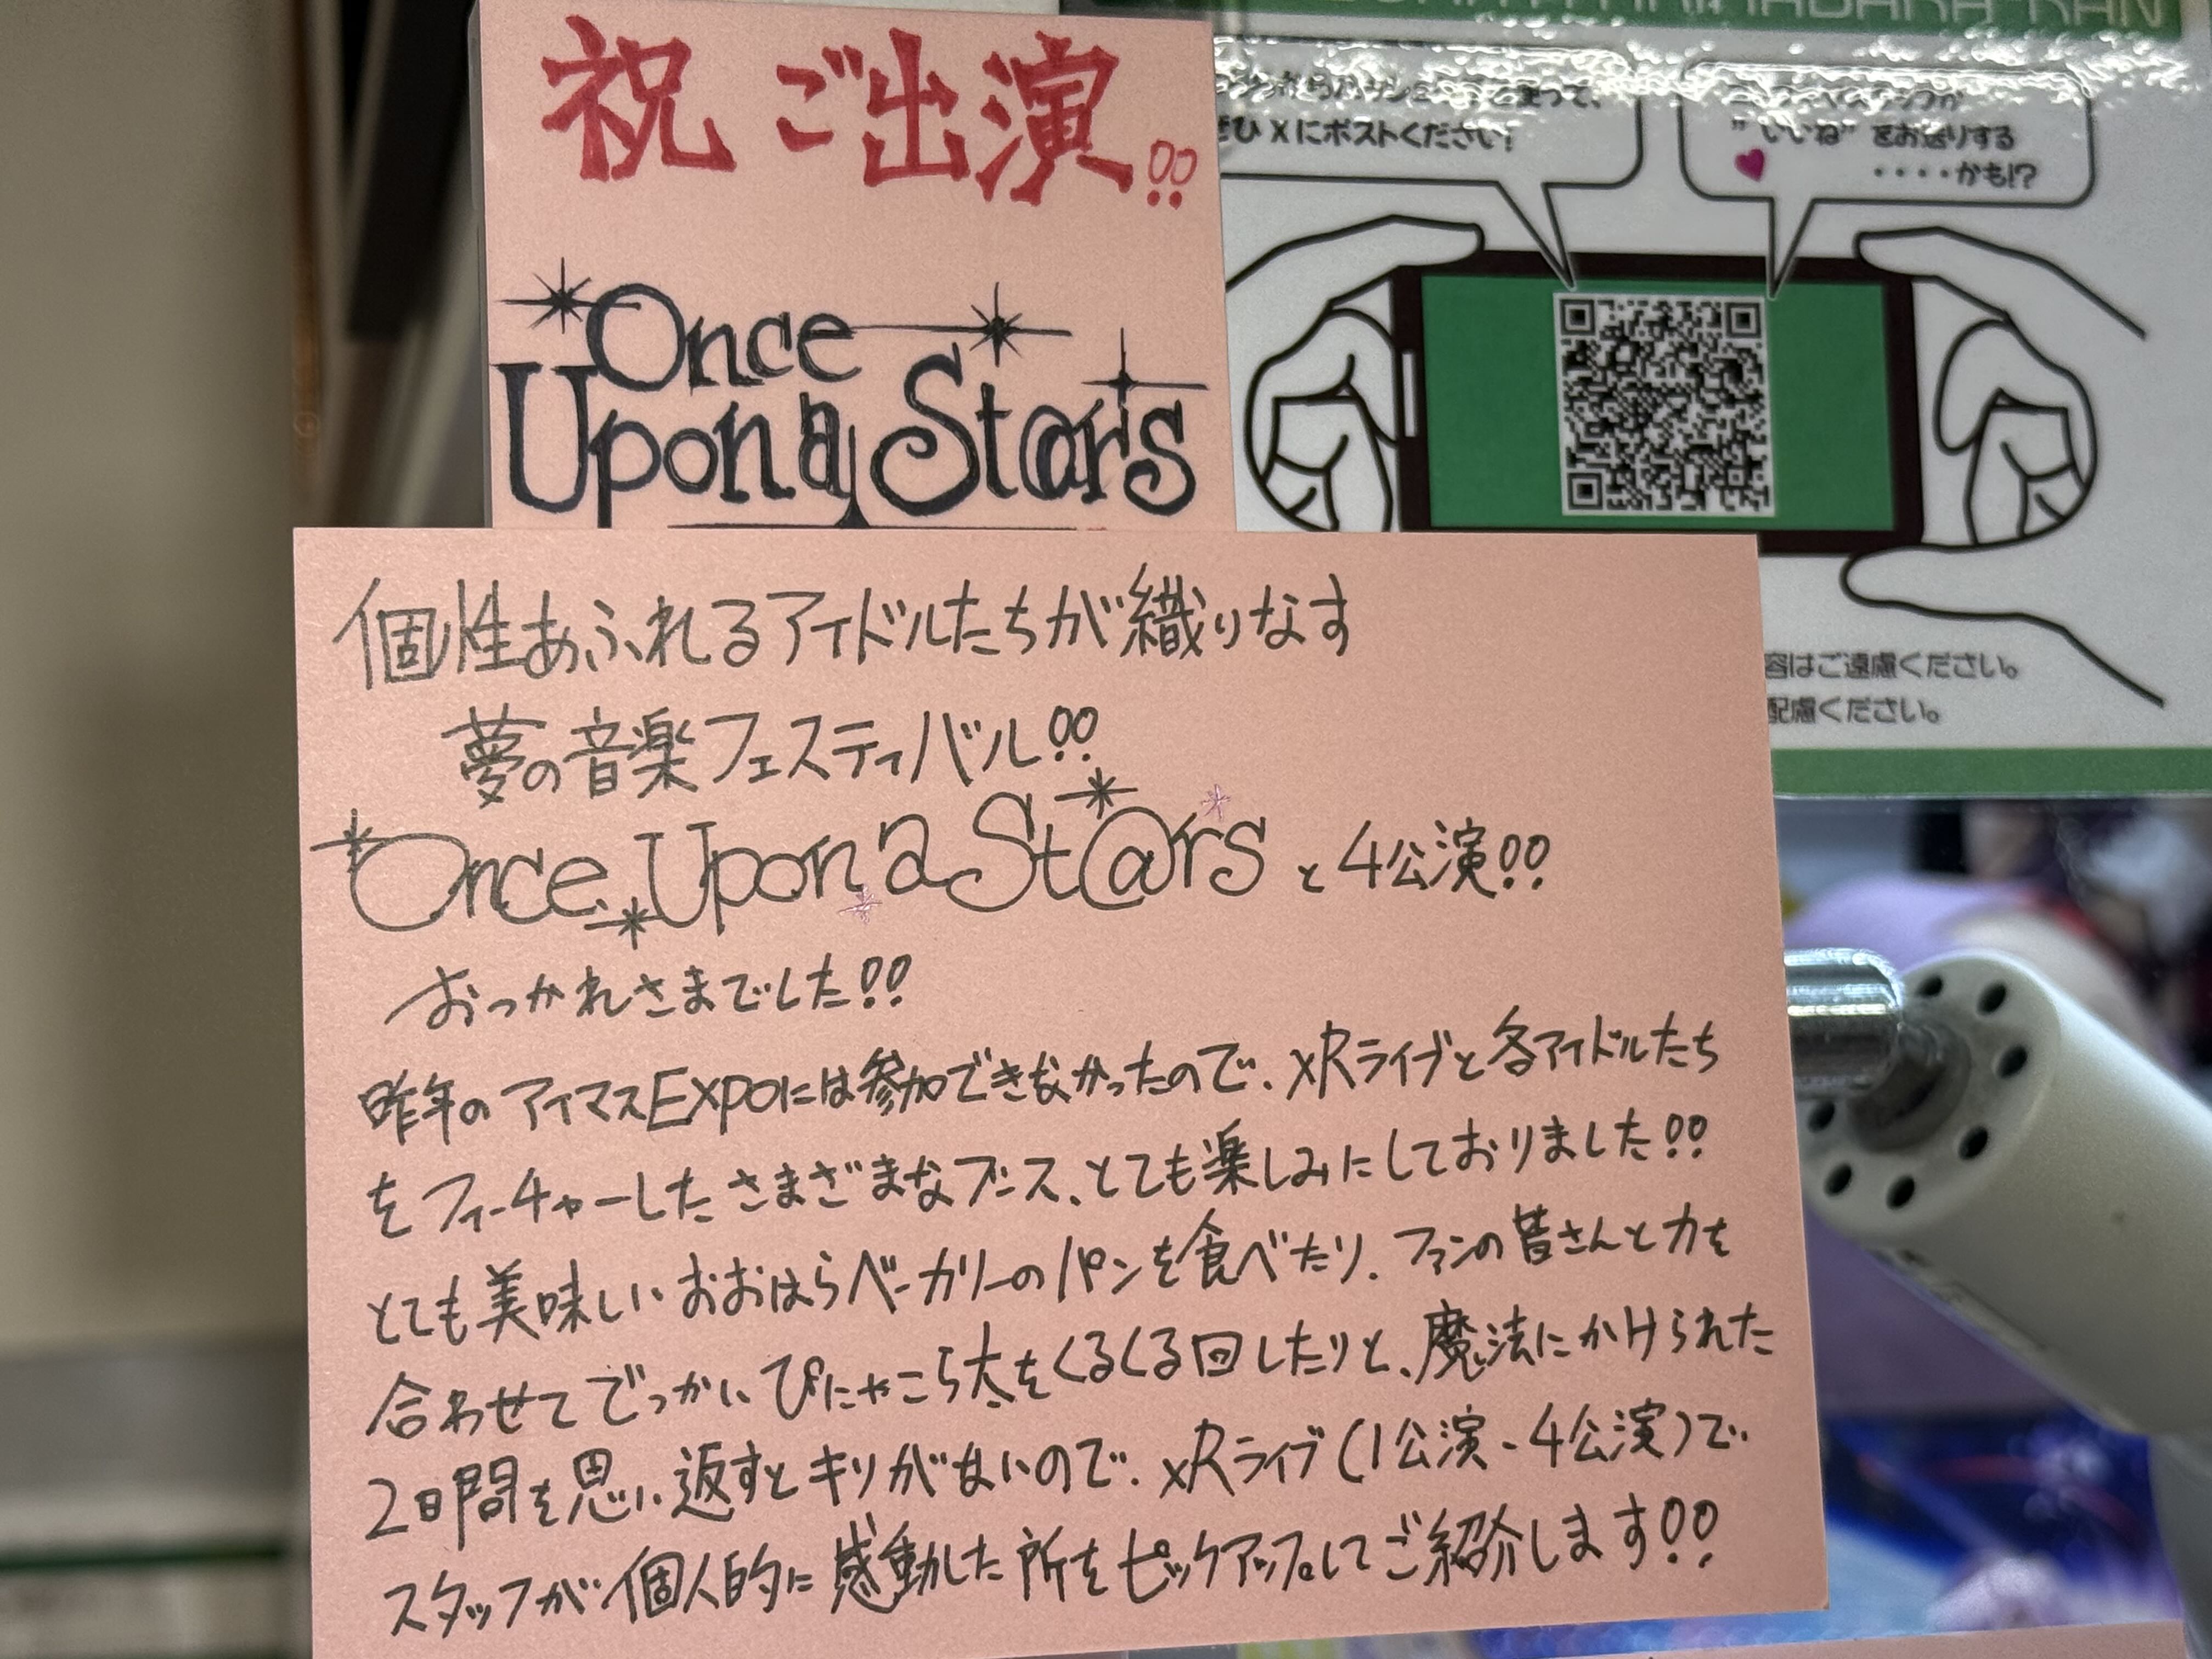 祝 ご出演!!
Once
Upon a St@rs
ぜひ Xにポストください!
"いいね" をお送りする
・・・・かも!?
容はご遠慮ください。
配慮ください。
個性あふれるアイドルたちが織りなす
夢の音楽フェスティバル!!
Once Upon a St@rs と4公演!!
おつかれさまでした!!
昨年のアイマスEXPOには参加できなかったので、xRライブと各アイドルたち
をフィーチャーしたさまざまなブース、とても楽しみにしておりました!!
とても美味しいおおはらベーカリーのパンを食べたり、ファンの皆さんと力を
合わせてでっかいぴにゃこら太をくるくる回したりと、魔法にかけられた
2日間を思い返すとキリがないので、xRライブ(1公演、4公演)で
スタッフが個人的に感動した所をピックアップしてご紹介します!!